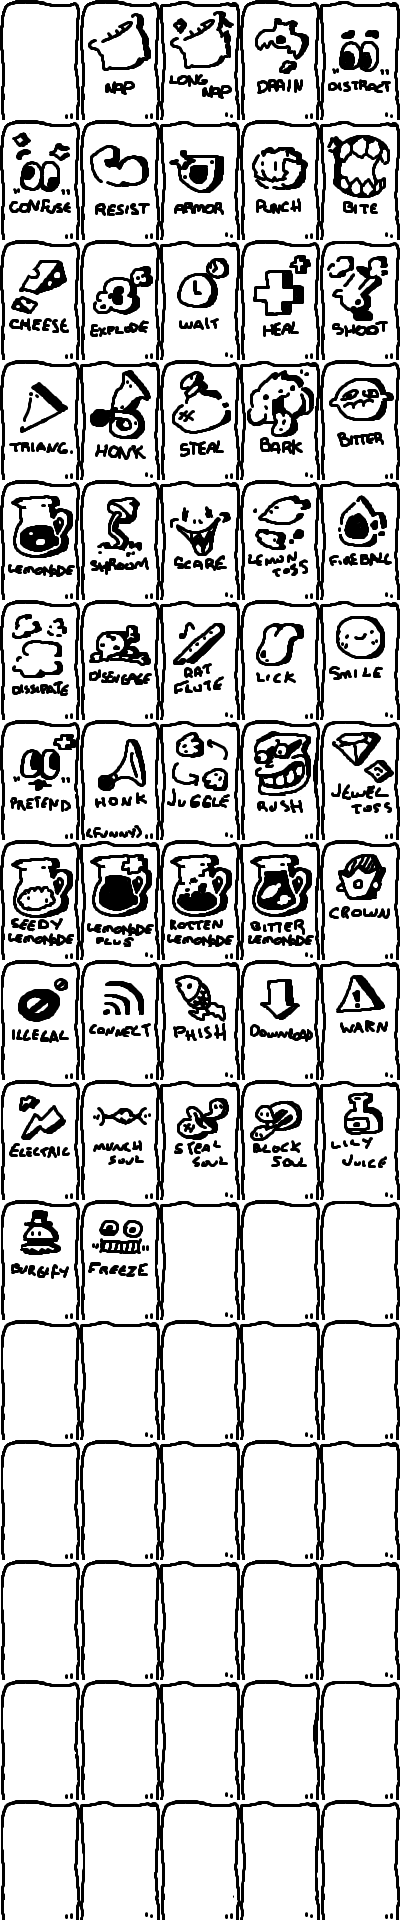 NAP
LONG
NAP
DRAIN
DISTRACT
CONFUSE
RESIST
ARMOR
PUNCH
BITE
CHEESE
EXPLODE
WAIT
HEAL
SHOOT
TRIANG.
HONK
STEAL
BARK
BITTER
LEMONADE
SHROOM
SCARE
LEMON
TOSS
FIREBALL
DISSIPATE
DISENGAGE
RAT
FLUTE
LICK
SMILE
PRETEND
HONK
(FUNNY)
JUGGLE
RUSH
JEWEL
TOSS
SEEDY
LEMONADE
LEMONADE
PLUS
ROTTEN
LEMONADE
BITTER
LEMONADE
CROWN
ILLEGAL
CONNECT
PHISH
DOWNLOAD
WARN
ELECTRIC
MUNCH
SOUL
STEAL
SOUL
BLOCK
SOUL
LILY
JUICE
BURGIFY
FREEZE